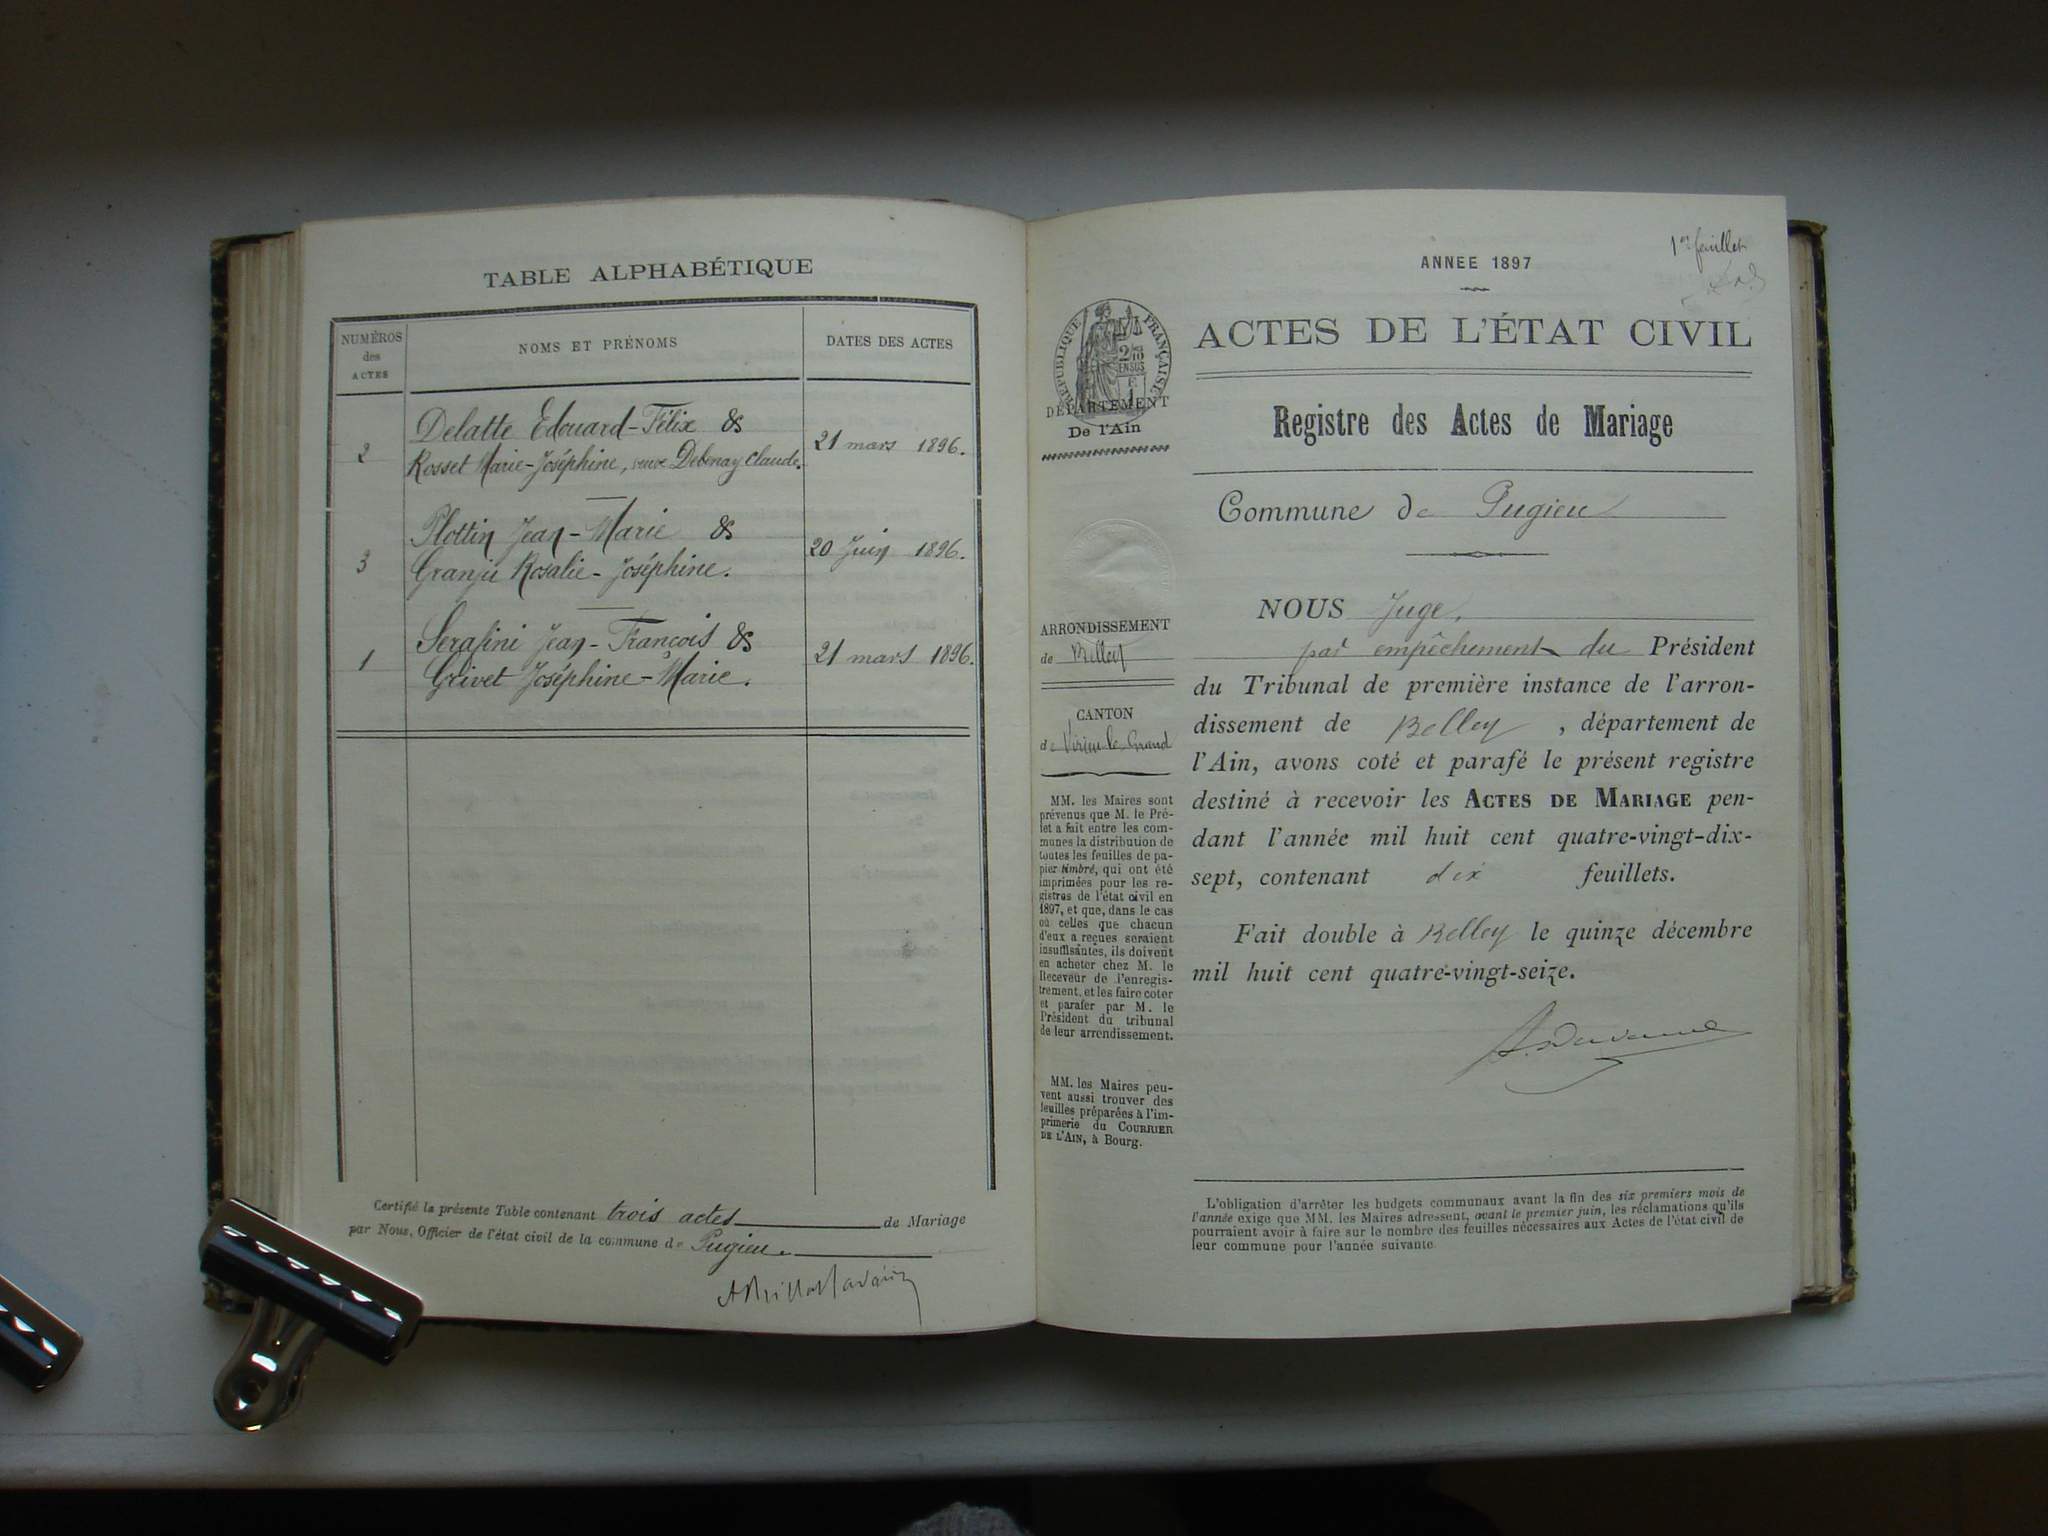 TABLE ALPHABÉTIQUE
NUMÉROS
des
ACTES
NOMS ET PRÉNOMS
DATES DES ACTES
2
Delatte Edouard-Félix &
Rosset Marie-Joséphine, veuve Debenay Claude.
21 mars 1896.
3
Plottin Jean-Marie &
Granju Rosalie-Joséphine.
20 Juin 1896.
1
Serafini Jean-François &
Grivet Joséphine-Marie.
21 mars 1896.
Certifié la présente Table contenant trois actes de Mariage
par Nous, Officier de l'état civil de la commune de Pugieu.
1er feuillet
ANNEE 1897
ACTES DE L'ÉTAT CIVIL
RÉPUBLIQUE FRANÇAISE
2/10
EN SUS
DÉPARTEMENT
De l'Ain
Registre des Actes de Mariage
Commune de Pugieu
ARRONDISSEMENT
de Belley
CANTON
de Virieu-le-Grand
MM. les Maires sont
prévenus que M. le Pré-
fet a fait entre les com-
munes la distribution de
toutes les feuilles de pa-
pier timbré, qui ont été
imprimées pour les re-
gistres de l'état civil en
1897, et que, dans le cas
où celles que chacun
d'eux a reçues seraient
insuffisantes, ils doivent
en acheter chez M. le
Receveur de l'enregis-
trement, et les faire coter
et parafer par M. le
Président du tribunal
de leur arrondissement.
MM. les Maires peu-
vent aussi trouver des
feuilles préparées à l'im-
primerie du COURRIER
DE L'AIN, à Bourg.
NOUS Juge,
par empêchement du Président
du Tribunal de première instance de l'arron-
dissement de Belley, département de
l'Ain, avons coté et parafé le présent registre
destiné à recevoir les ACTES DE MARIAGE pen-
dant l'année mil huit cent quatre-vingt-dix-
sept, contenant dix feuillets.
Fait double à Belley le quinze décembre
mil huit cent quatre-vingt-seize.
L'obligation d'arrêter les budgets communaux avant la fin des six premiers mois de
l'année exige que MM. les Maires adressent, avant le premier juin, les réclamations qu'ils
pourraient avoir à faire sur le nombre des feuilles nécessaires aux Actes de l'état civil de
leur commune pour l'année suivante.